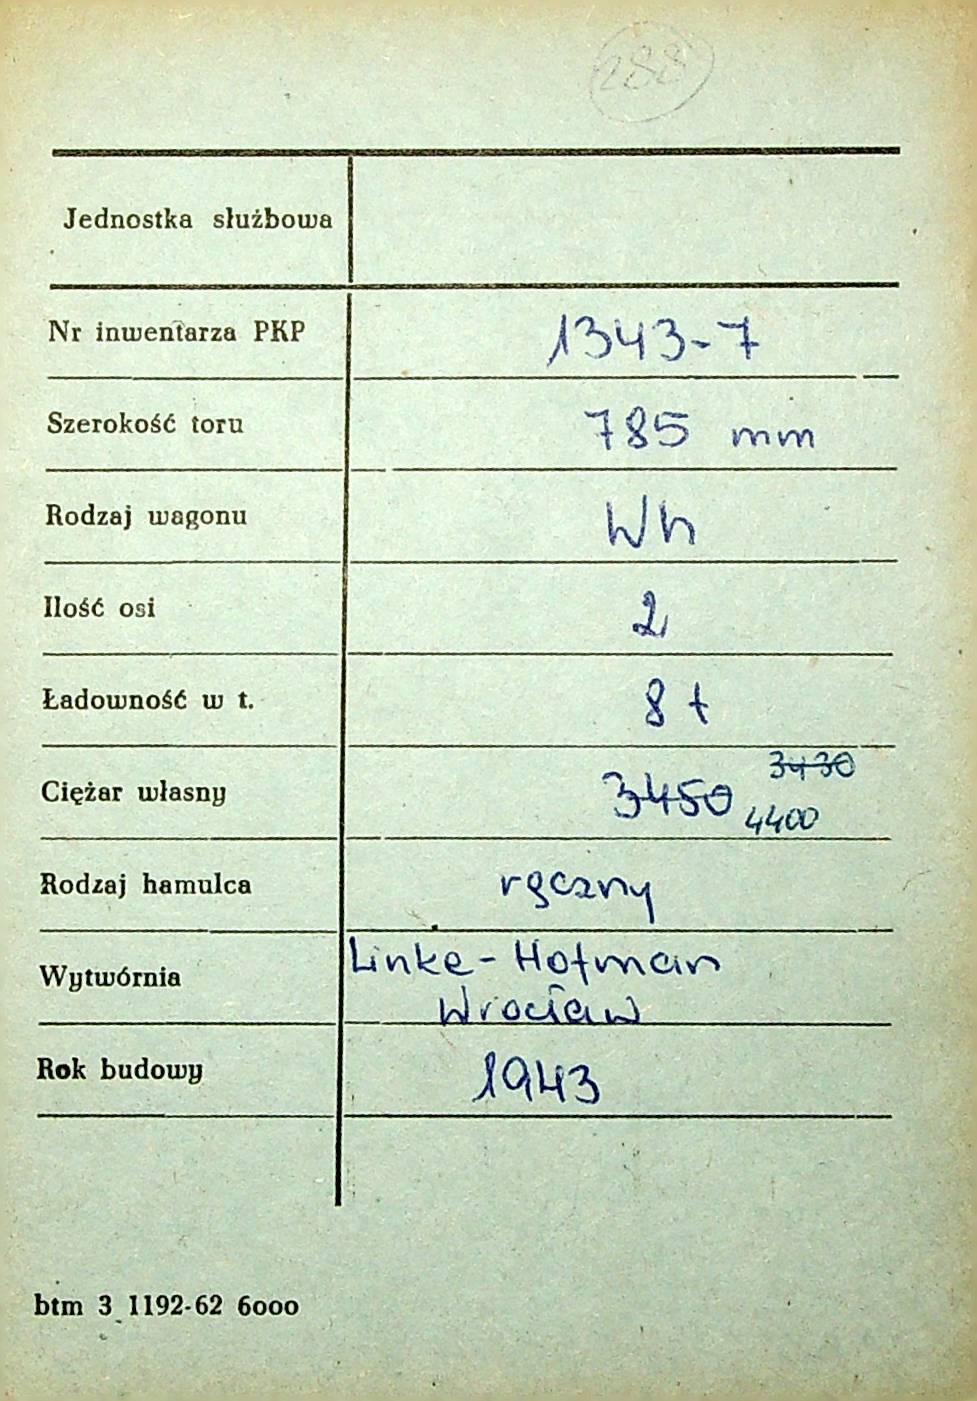 288
Jednostka służbowa
Nr inwentarza PKP 1343-7
Szerokość toru 785 mm
Rodzaj wagonu Wh
Ilość osi 2
Ładowność w t. 8 t
3430
Ciężar własny 3450
4400
Rodzaj hamulca ręczny
Wytwórnia Linke-Hofman
Wrocław
Rok budowy 1943
btm 3 1192-62 6000